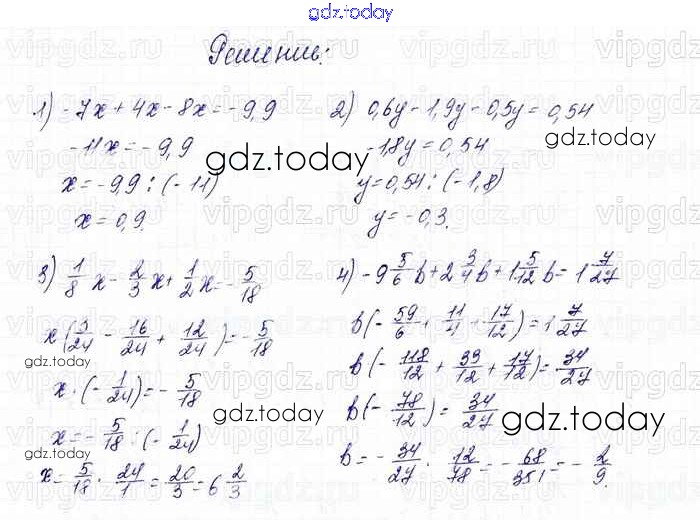 gdz.today
Решение:
1) -7x + 4x - 8x = -9,9
-11x = -9,9
x = -9,9 : (-11)
x = 0,9.
2) 0,6y - 1,9y - 0,5y = 0,54
-1,8y = 0,54
y = 0,54 : (-1,8)
y = -0,3.
gdz.today
gdz.today
3) 1/8 x - 2/3 x + 1/2 x = - 5/18
x(3/24 - 16/24 + 12/24) = - 5/18
x · (- 1/24) = - 5/18
x = - 5/18 : (- 1/24)
x = 5/18 · 24/1 = 20/3 = 6 2/3
4) -9 5/6 b + 2 3/4 b + 1 5/12 b = 1 7/27
b(- 59/6 + 11/4 + 17/12) = 1 7/27
b(- 118/12 + 33/12 + 17/12) = 34/27
b(- 78/12) = 34/27
b = - 34/27 · 12/78 = - 68/351 = - 2/9.
gdz.today
gdz.today
gdz.today
gdz.today